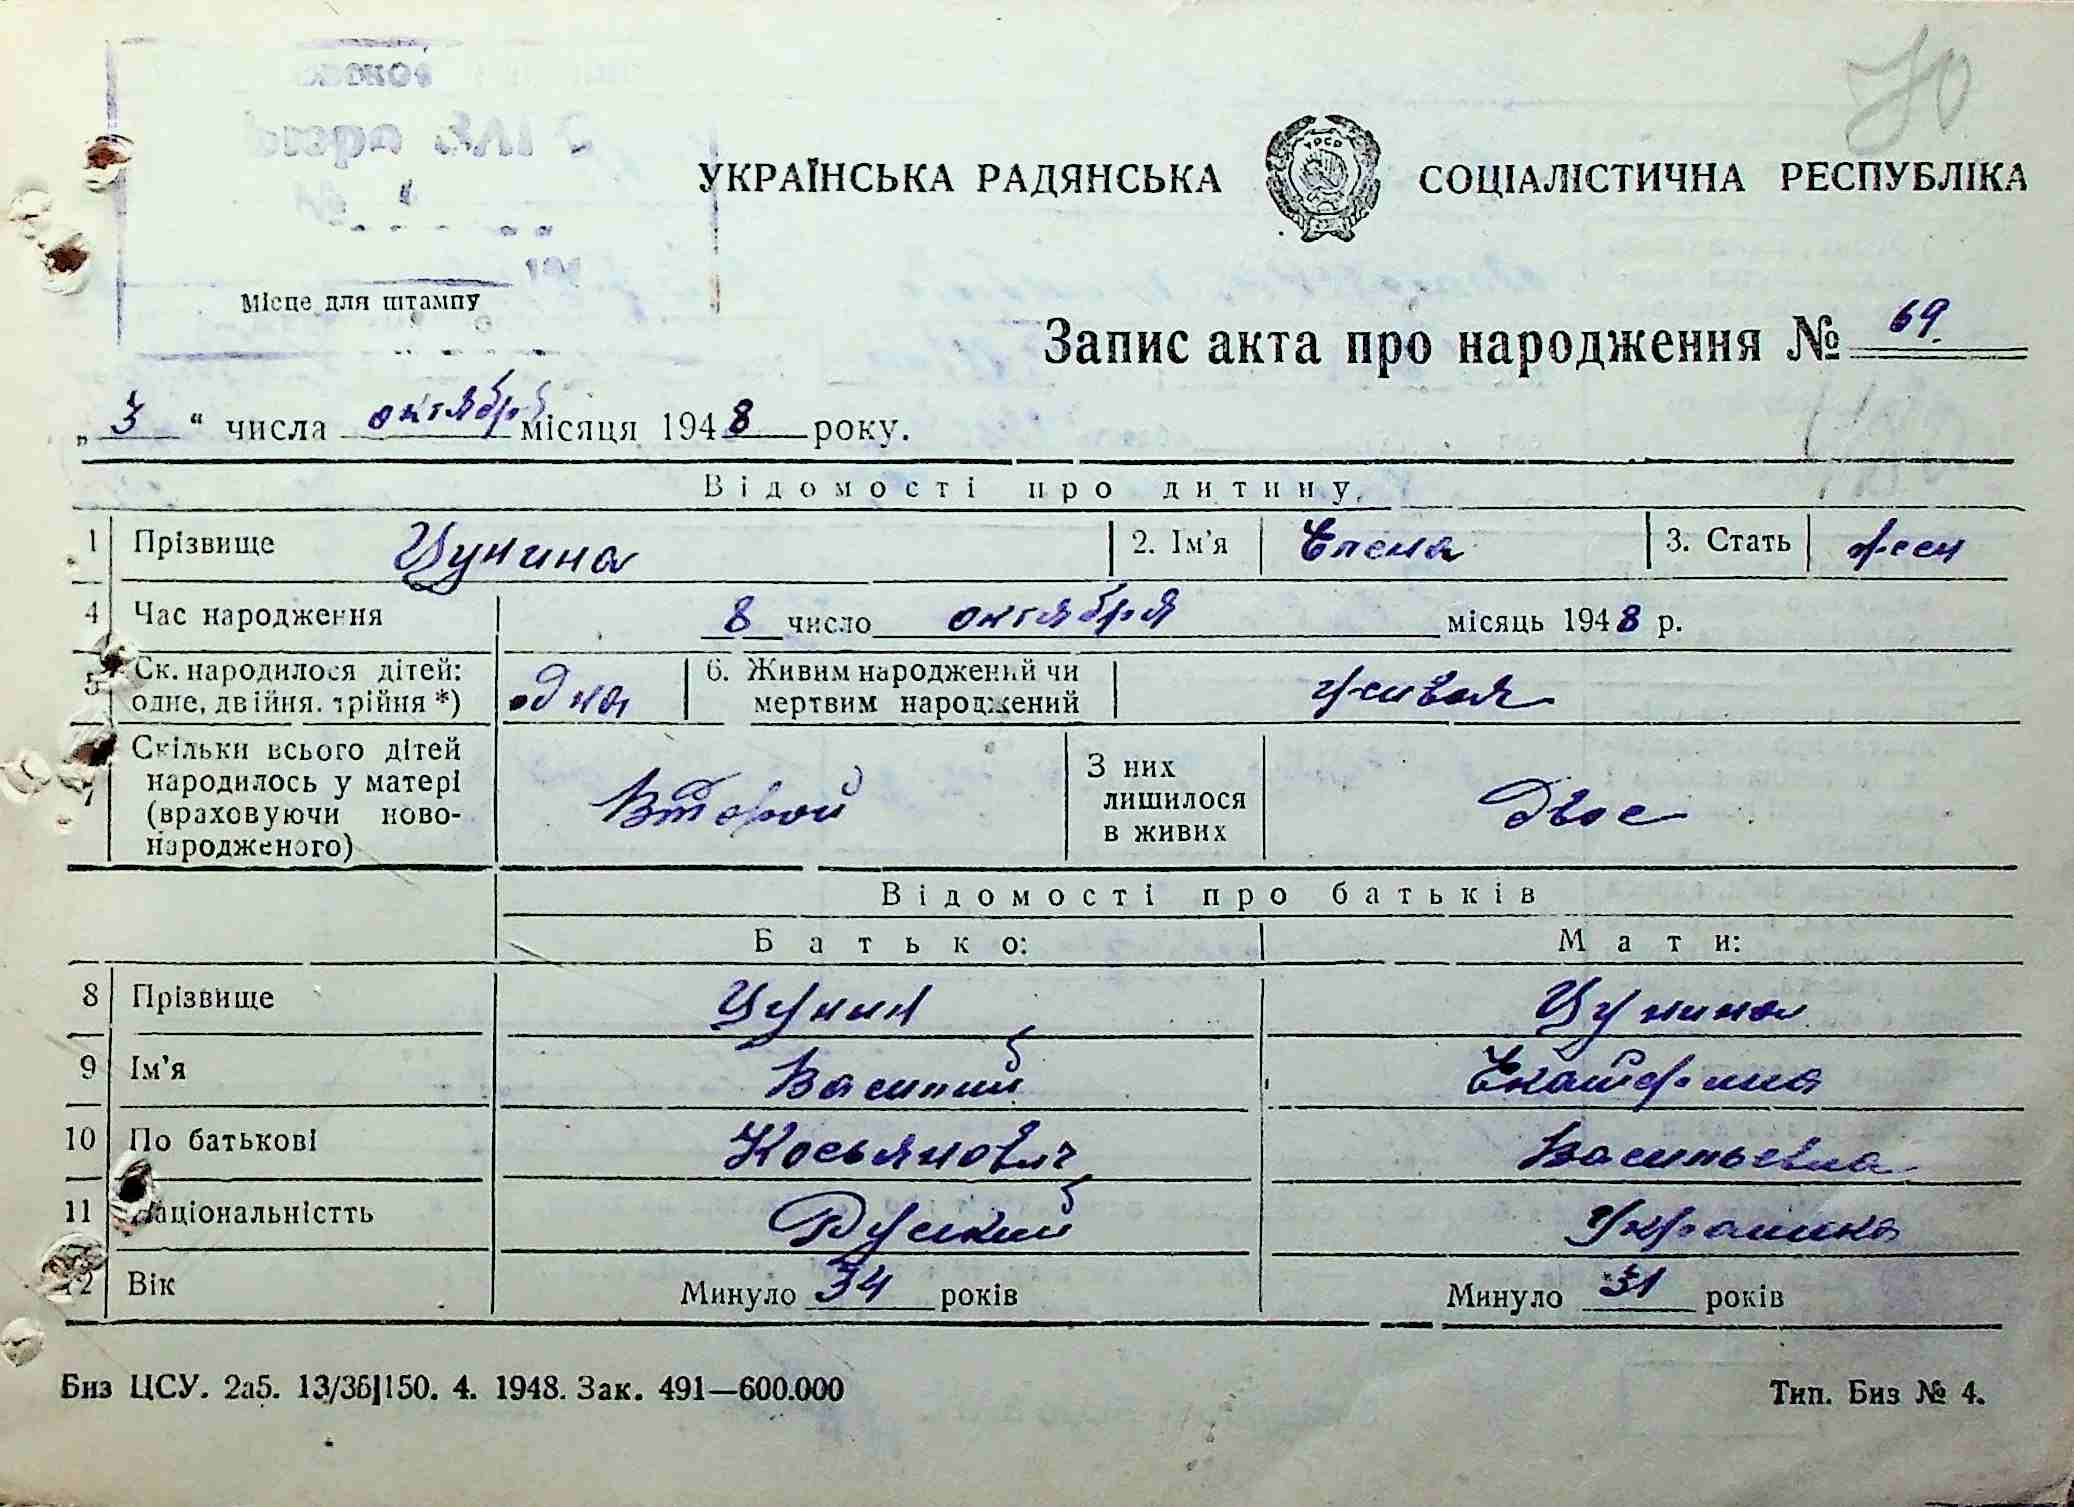 70
УКРАЇНСЬКА РАДЯНСЬКА СОЦІАЛІСТИЧНА РЕСПУБЛІКА
УРСР
Місце для штампу
Запис акта про народження № 69.
„3“ числа октября місяця 1948 року.
Відомості про дитину
1 Прізвище Цунина 2. Ім'я Елена 3. Стать жен
4 Час народження 8 число октября місяць 1948 р.
5 Ск. народилося дітей: одне, двійня, трійня *) одна 6. Живим народжений чи мертвим народжений живая
7 Скільки всього дітей народилось у матері (враховуючи ново-народженого) Второй З них лишилося в живих Двое
Відомості про батьків
Батько: Мати:
8 Прізвище Цунин Цунина
9 Ім'я Василий Екатерина
10 По батькові Косьянович Васильевна
11 Національністть Руский Украинка
12 Вік Минуло 34 років Минуло 31 років
Биз ЦСУ. 2а5. 13/3б|150. 4. 1948. Зак. 491—600.000 Тип. Биз № 4.